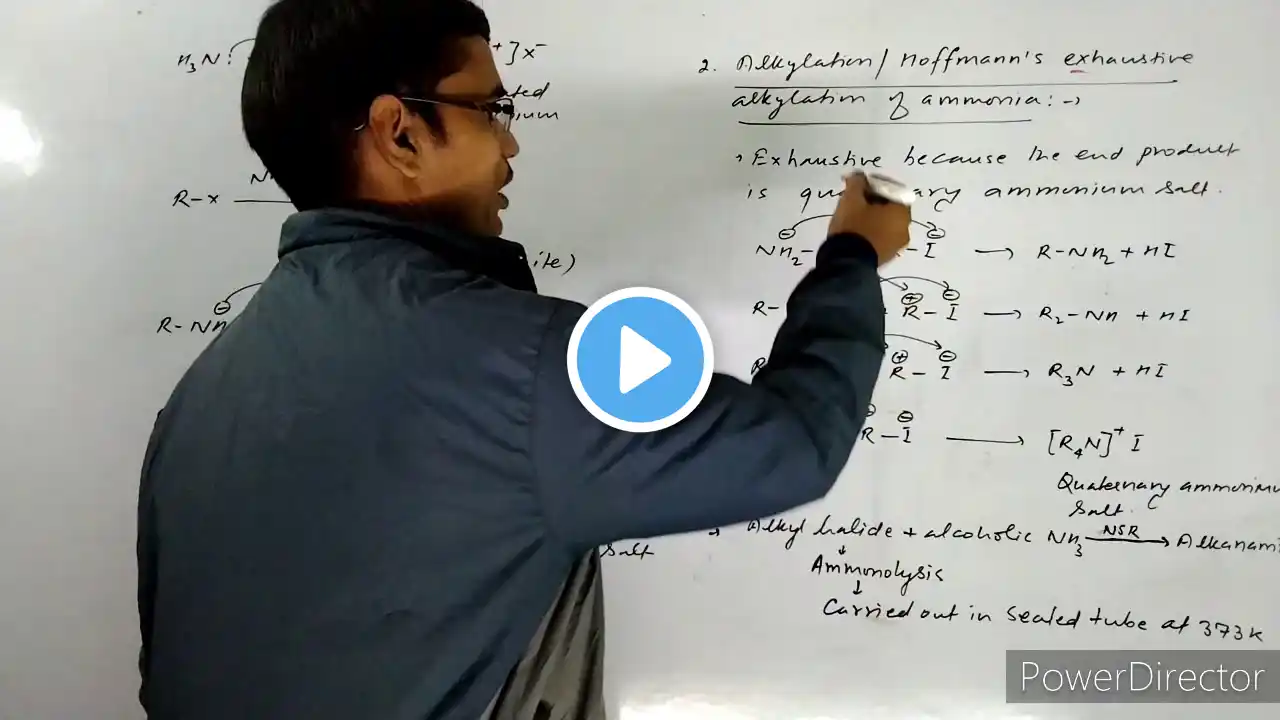 H₃N:
⁺]x⁻
R-x
R-NH
salt
2. Alkylation/Hoffmann's exhaustive
alkylation of ammonia:→
Exhaustive because the end product
is ammonium salt.
NH₂- -I → R-NH₂ + HI
R- R-I → R₂-NH + HI
R-I → R₃N + HI
R-I → [R₄N]⁺I
Quaternary ammonium
salt.
→ Alkyl halide + alcoholic NH₃ NSR→
↓
Ammonolysis
↓
Carried out in sealed tube at 373K
PowerDirector